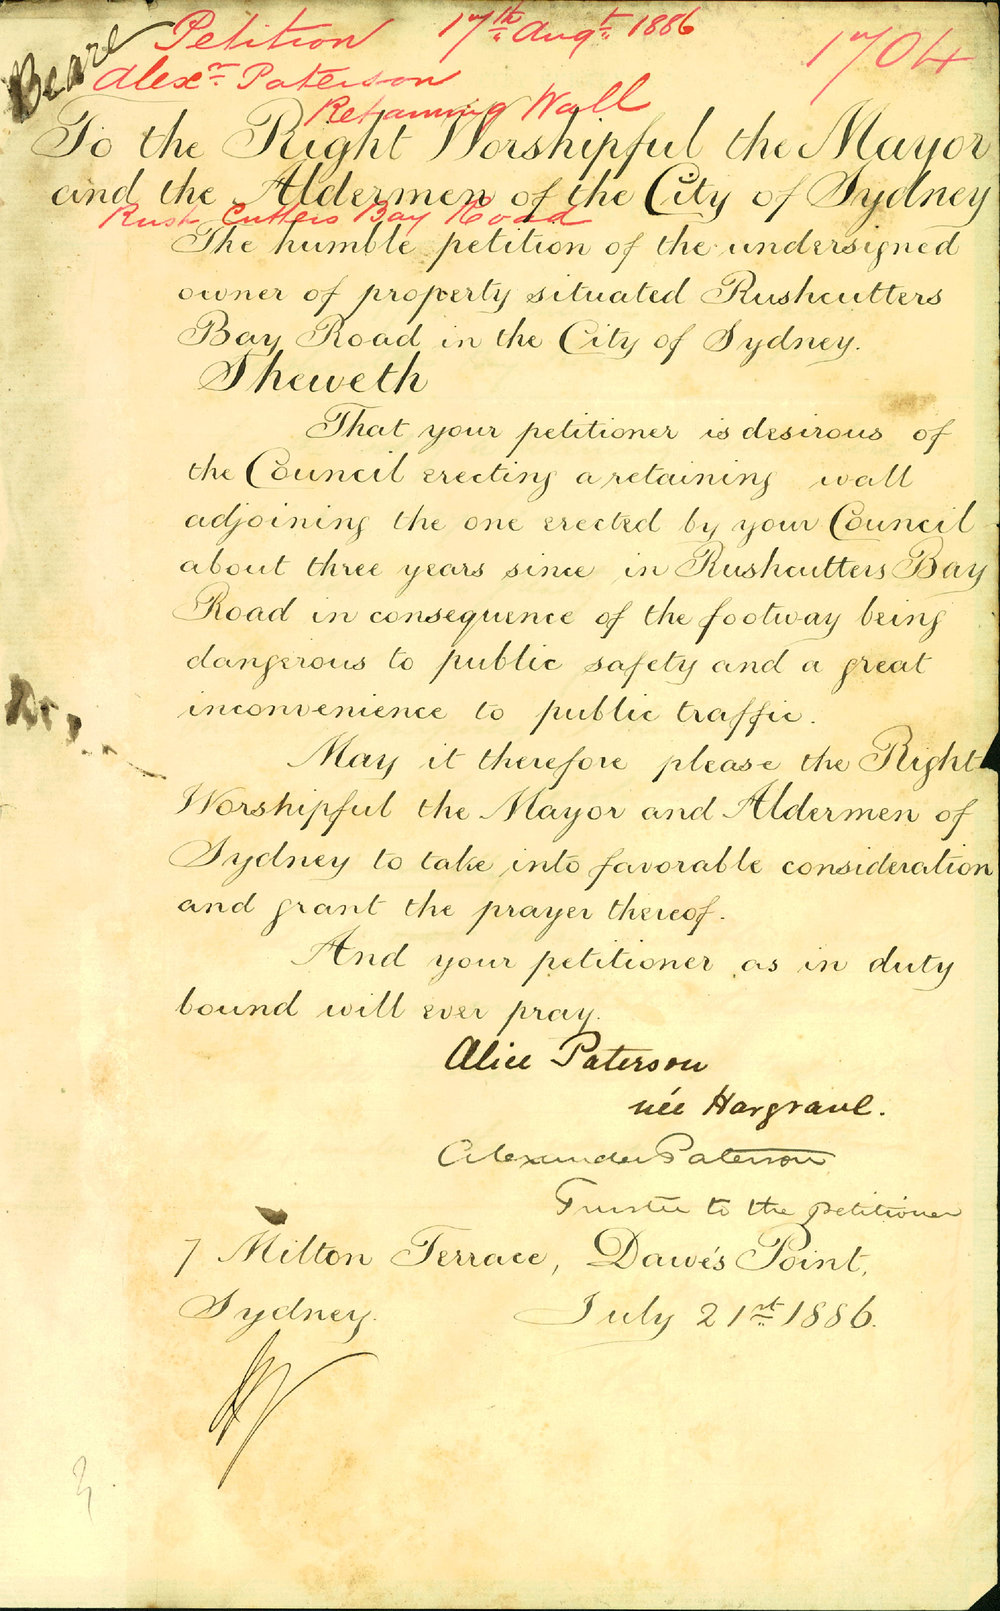 Beare
Petition 17th Augt 1886
1704
Alexr Paterson
Retaining Wall
To the Right Worshipful the Mayor
and the Aldermen of the City of Sydney
Rush Cutters Bay Road
The humble petition of the undersigned
owner of property situated Rushcutters
Bay Road in the City of Sydney.
Sheweth
That your petitioner is desirous of
the Council erecting a retaining wall
adjoining the one erected by your Council
about three years since in Rushcutters Bay
Road in consequence of the footway being
dangerous to public safety and a great
inconvenience to public traffic.
May it therefore please the Right
Worshipful the Mayor and Aldermen of
Sydney to take into favorable consideration
and grant the prayer thereof.
And your petitioner as in duty
bound will ever pray.
Alice Paterson
née Hargrave.
Alexander Paterson
Trustee to the petitioner
7 Milton Terrace, Dawe's Point,
Sydney. July 21st 1886.